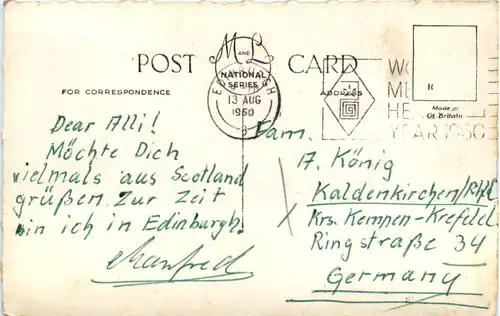 POST CARD
M AND L
NATIONAL SERIES
EDINBURGH
13 AUG
1960
FOR CORRESPONDENCE
ADDRESS
WO
ME
HE
YEAR 1960
R
Made in
Gt. Britain
Dear Alli!
Möchte Dich
vielmals aus Scotland
grüßen. Zur Zeit
bin ich in Edinburgh.
Manfred
Fam.
A. König
Kaldenkirchen/Rhld
Krs. Kempen-Krefeld
Ringstraße 34
Germany